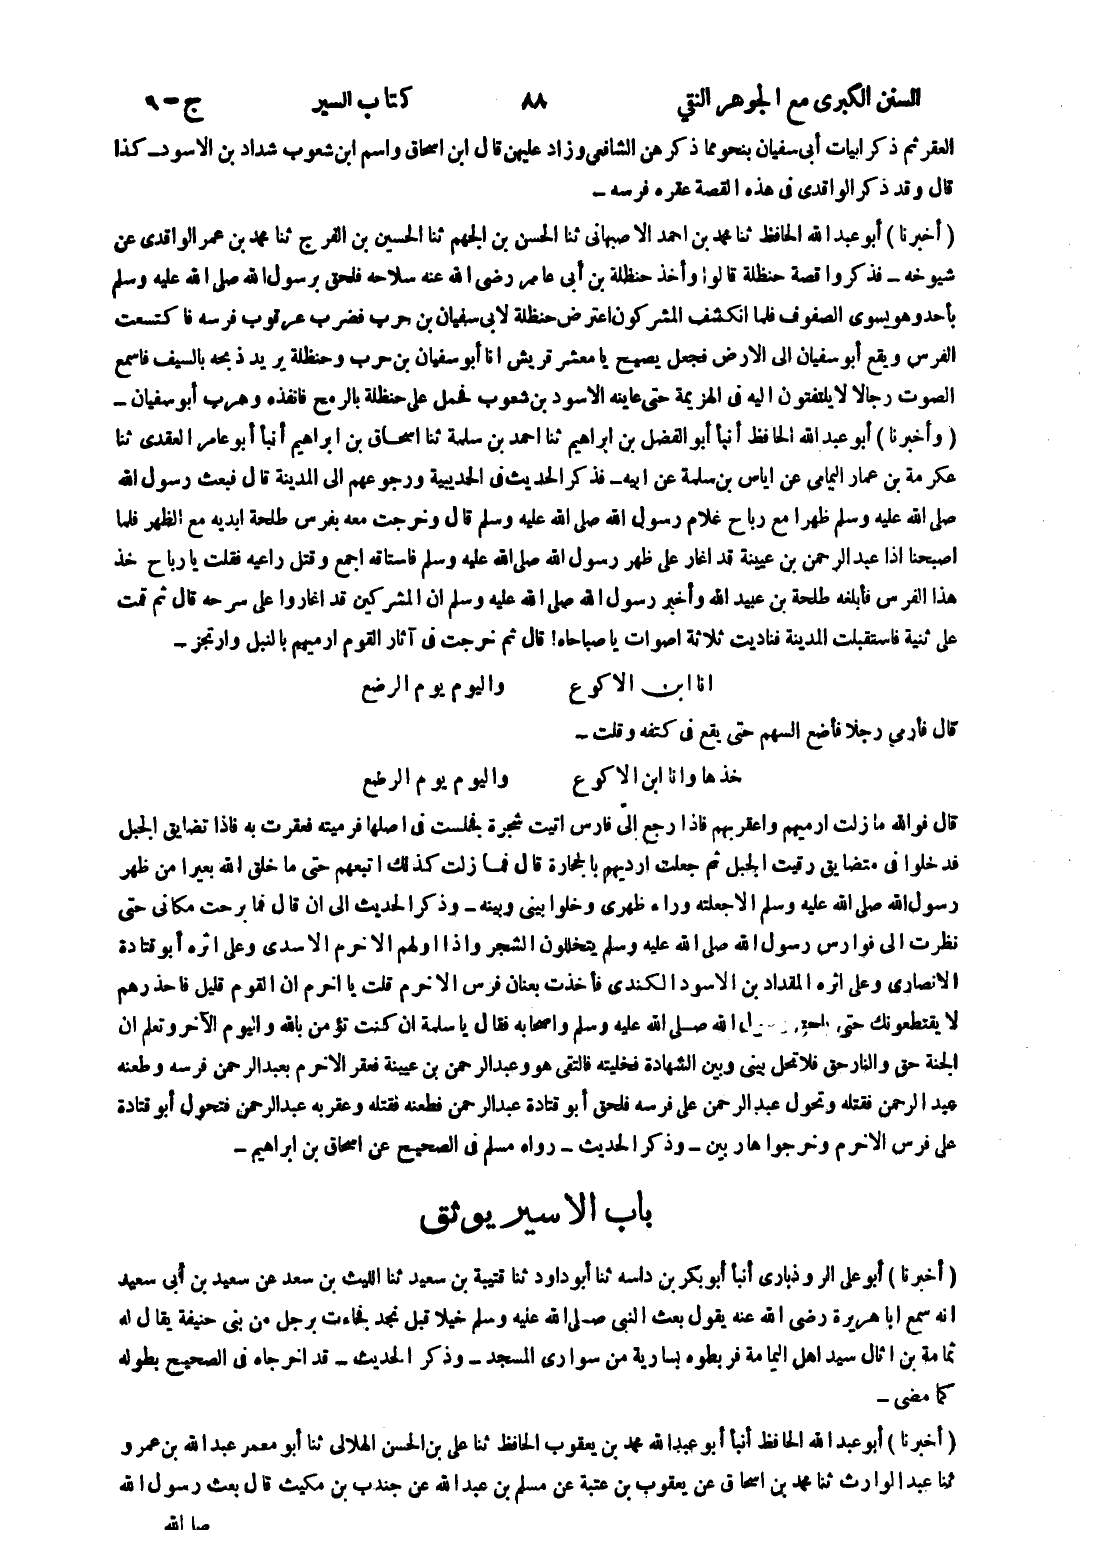 السنن الكبرى مع الجوهر النقي ٨٨ كتاب السير ج-٩
العقر ثم ذكر ابيات أبى سفيان بنحو مما ذكر هن الشافعى وزاد عليهن قال ابن اسحاق واسم ابن شعوب شداد بن الاسود ـ كذا
قال وقد ذكر الواقدى فى هذه القصة عقره فرسه ـ
( أخبرنا ) أبو عبد الله الحافظ ثنا محمد بن احمد الاصبهانى ثنا الحسن بن الجهم ثنا الحسين بن الفرج ثنا محمد بن عمر الواقدى عن
شيوخه ـ فذكروا قصة حنظلة قالوا وأخذ حنظلة بن أبى عامر رضى الله عنه سلاحه فلحق برسول الله صلى الله عليه وسلم
بأحد وهو يسوى الصفوف فلما انكشف المشركون اعترض حنظلة لابى سفيان بن حرب فضرب عرقوب فرسه فاكتسعت
الفرس ويقع أبو سفيان الى الارض فجعل يصيح يا معشر قريش انا أبو سفيان بن حرب وحنظلة يريد ذبحه بالسيف فاسمع
الصوت رجالا لا يلتفتون اليه فى الهزيمة حتى عاينه الاسود بن شعوب فحمل على حنظلة بالرمح فانفذه وهرب أبو سفيان ـ
( وأخبرنا ) أبو عبد الله الحافظ أنبأ أبو الفضل بن ابراهيم ثنا احمد بن سلمة ثنا اسحاق بن ابراهيم أنبأ أبو عامر العقدى ثنا
عكرمة بن عمار اليمامى عن اياس بن سلمة عن ابيه ـ فذكر الحديث فى الحديبية ورجوعهم الى المدينة قال فبعث رسول الله
صلى الله عليه وسلم ظهرا مع رباح غلام رسول الله صلى الله عليه وسلم قال وخرجت معه بفرس طلحة ابديه مع الظهر فلما
اصبحنا اذا عبد الرحمن بن عيينة قد اغار على ظهر رسول الله صلى الله عليه وسلم فاستاقه اجمع وقتل راعيه فقلت يا رباح خذ
هذا الفرس فأبلغه طلحة بن عبيد الله وأخبر رسول الله صلى الله عليه وسلم ان المشركين قد اغاروا على سرحه قال ثم قمت
على ثنية فاستقبلت المدينة فناديت ثلاثة اصوات يا صباحاه! قال ثم خرجت فى آثار القوم ارميهم بالنبل وارتجز ـ
انا ابن الاكوع واليوم يوم الرضع
قال فأرمي رجلا فأضع السهم حتى يقع فى كتفه وقلت ـ
خذها وانا ابن الاكوع واليوم يوم الرضع
قال فوالله ما زلت ارميهم واعقر بهم فاذا رجع إلىّ فارس اتيت شجرة فجلست فى اصلها فرميته فعقرت به فاذا تضايق الجبل
فدخلوا فى متضايق رقيت الجبل ثم جعلت ارديهم بالحجارة قال فما زلت كذلك اتبعهم حتى ما خلق الله بعيرا من ظهر
رسول الله صلى الله عليه وسلم الا جعلته وراء ظهرى وخلوا بينى وبينه ـ وذكر الحديث الى ان قال فما برحت مكانى حتى
نظرت الى فوارس رسول الله صلى الله عليه وسلم يتخللون الشجر واذا اولهم الاخرم الاسدى وعلى اثره أبو قتادة
الانصارى وعلى اثره المقداد بن الاسود الكندى فأخذت بعنان فرس الاخرم قلت يا اخرم ان القوم قليل فاحذرهم
لا يقتطعونك حتى يلحق رسول الله صلى الله عليه وسلم واصحابه فقال يا سلمة ان كنت تؤمن بالله واليوم الآخر وتعلم ان
الجنة حق والنار حق فلا تحل بينى وبين الشهادة فخليته فالتقى هو وعبد الرحمن بن عيينة فعقر الاخرم بعبد الرحمن فرسه وطعنه
عبد الرحمن فقتله وتحول عبد الرحمن على فرسه فلحق أبو قتادة عبد الرحمن فطعنه فقتله وعقر به عبد الرحمن فتحول أبو قتادة
على فرس الاخرم وخرجوا هاربين ـ وذكر الحديث ـ رواه مسلم فى الصحيح عن اسحاق بن ابراهيم ـ
باب الاسير يوثق
( أخبرنا ) أبو على الروذبارى أنبأ أبو بكر بن داسه ثنا أبو داود ثنا قتيبة بن سعيد ثنا الليث بن سعد عن سعيد بن أبى سعيد
انه سمع ابا هريرة رضى الله عنه يقول بعث النبى صلى الله عليه وسلم خيلا قبل نجد فجاءت برجل من بنى حنيفة يقال له
ثمامة بن اثال سيد اهل اليمامة فربطوه بسارية من سوارى المسجد ـ وذكر الحديث ـ قد اخرجاه فى الصحيح بطوله
كما مضى ـ
( أخبرنا ) أبو عبد الله الحافظ أنبأ أبو عبد الله محمد بن يعقوب الحافظ ثنا على بن الحسن الهلالى ثنا أبو معمر عبد الله بن عمرو
ثنا عبد الوارث ثنا محمد بن اسحاق عن يعقوب بن عتبة عن مسلم بن عبد الله عن جندب بن مكيث قال بعث رسول الله